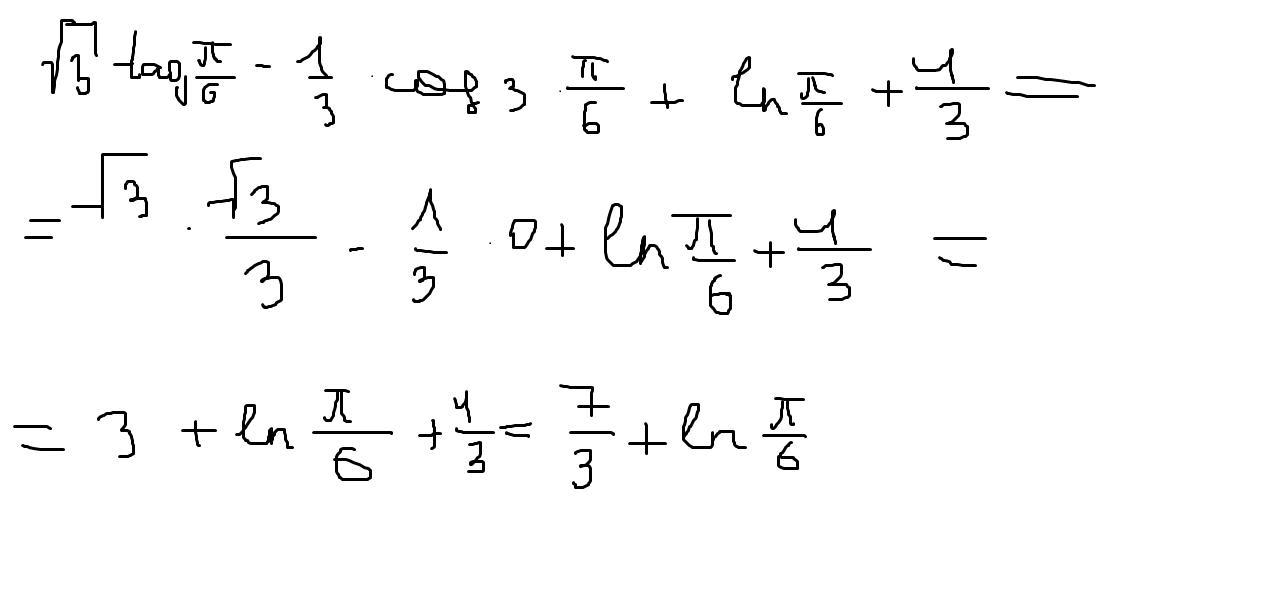 √3 tag π/6 - 1/3 · cos 3 · π/6 + ln π/6 + 4/3 =
= √3 · √3/3 - 1/3 · 0 + ln π/6 + 4/3 =
= 3 + ln π/6 + 4/3 = 7/3 + ln π/6